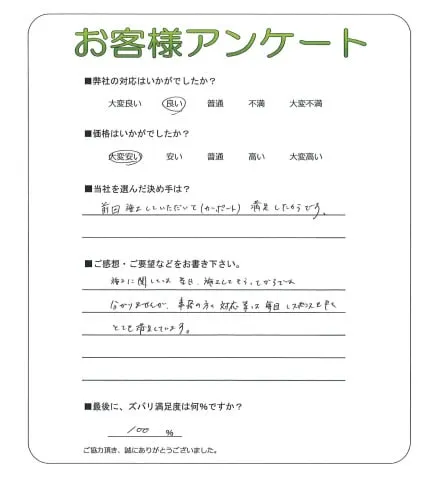 お客様アンケート
■弊社の対応はいかがでしたか？
大変良い 良い 普通 不満 大変不満
■価格はいかがでしたか？
大変安い 安い 普通 高い 大変高い
■当社を選んだ決め手は？
前回 施工していただいて(カーポート) 満足したからです。
■ご感想・ご要望などをお書き下さい。
施工に関しては 施工してもらってからでないと
分かりませんが、 の方の 対応 等は 毎回
とても満足しています。
■最後に、ズバリ満足度は何%ですか？
100 %
ご協力頂き、誠にありがとうございました。